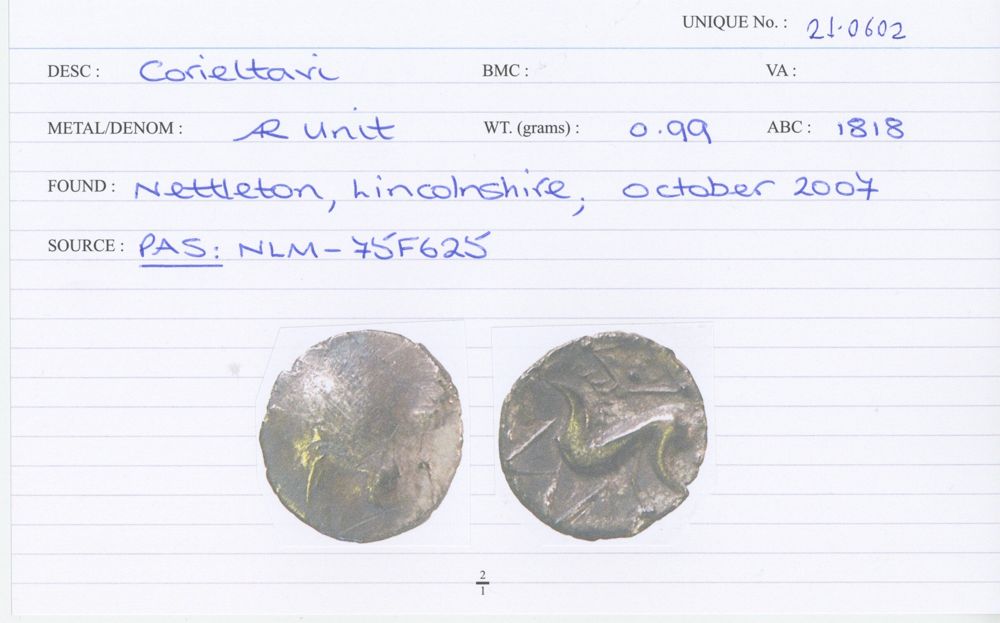 UNIQUE No. : 21.0602
DESC : Corieltavi BMC : VA :
METAL/DENOM : AR Unit WT. (grams) : 0.99 ABC : 1818
FOUND : Nettleton, Lincolnshire, October 2007
SOURCE : PAS: NLM-75F625
2
1